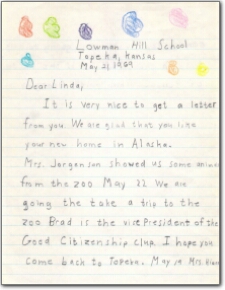 Lowman Hill School
Topeka, Kansas
May 21, 1969
Dear Linda,
It is very nice to get a letter
from you. We are glad that you like
your new home in Alaska.
Mrs. Jorganson showed us some
from the zoo May 22. We are
going the take a trip to the
zoo Brad is the vice President of the
Good Citizenship club. I hope you
come back to Topeka. May Mrs.